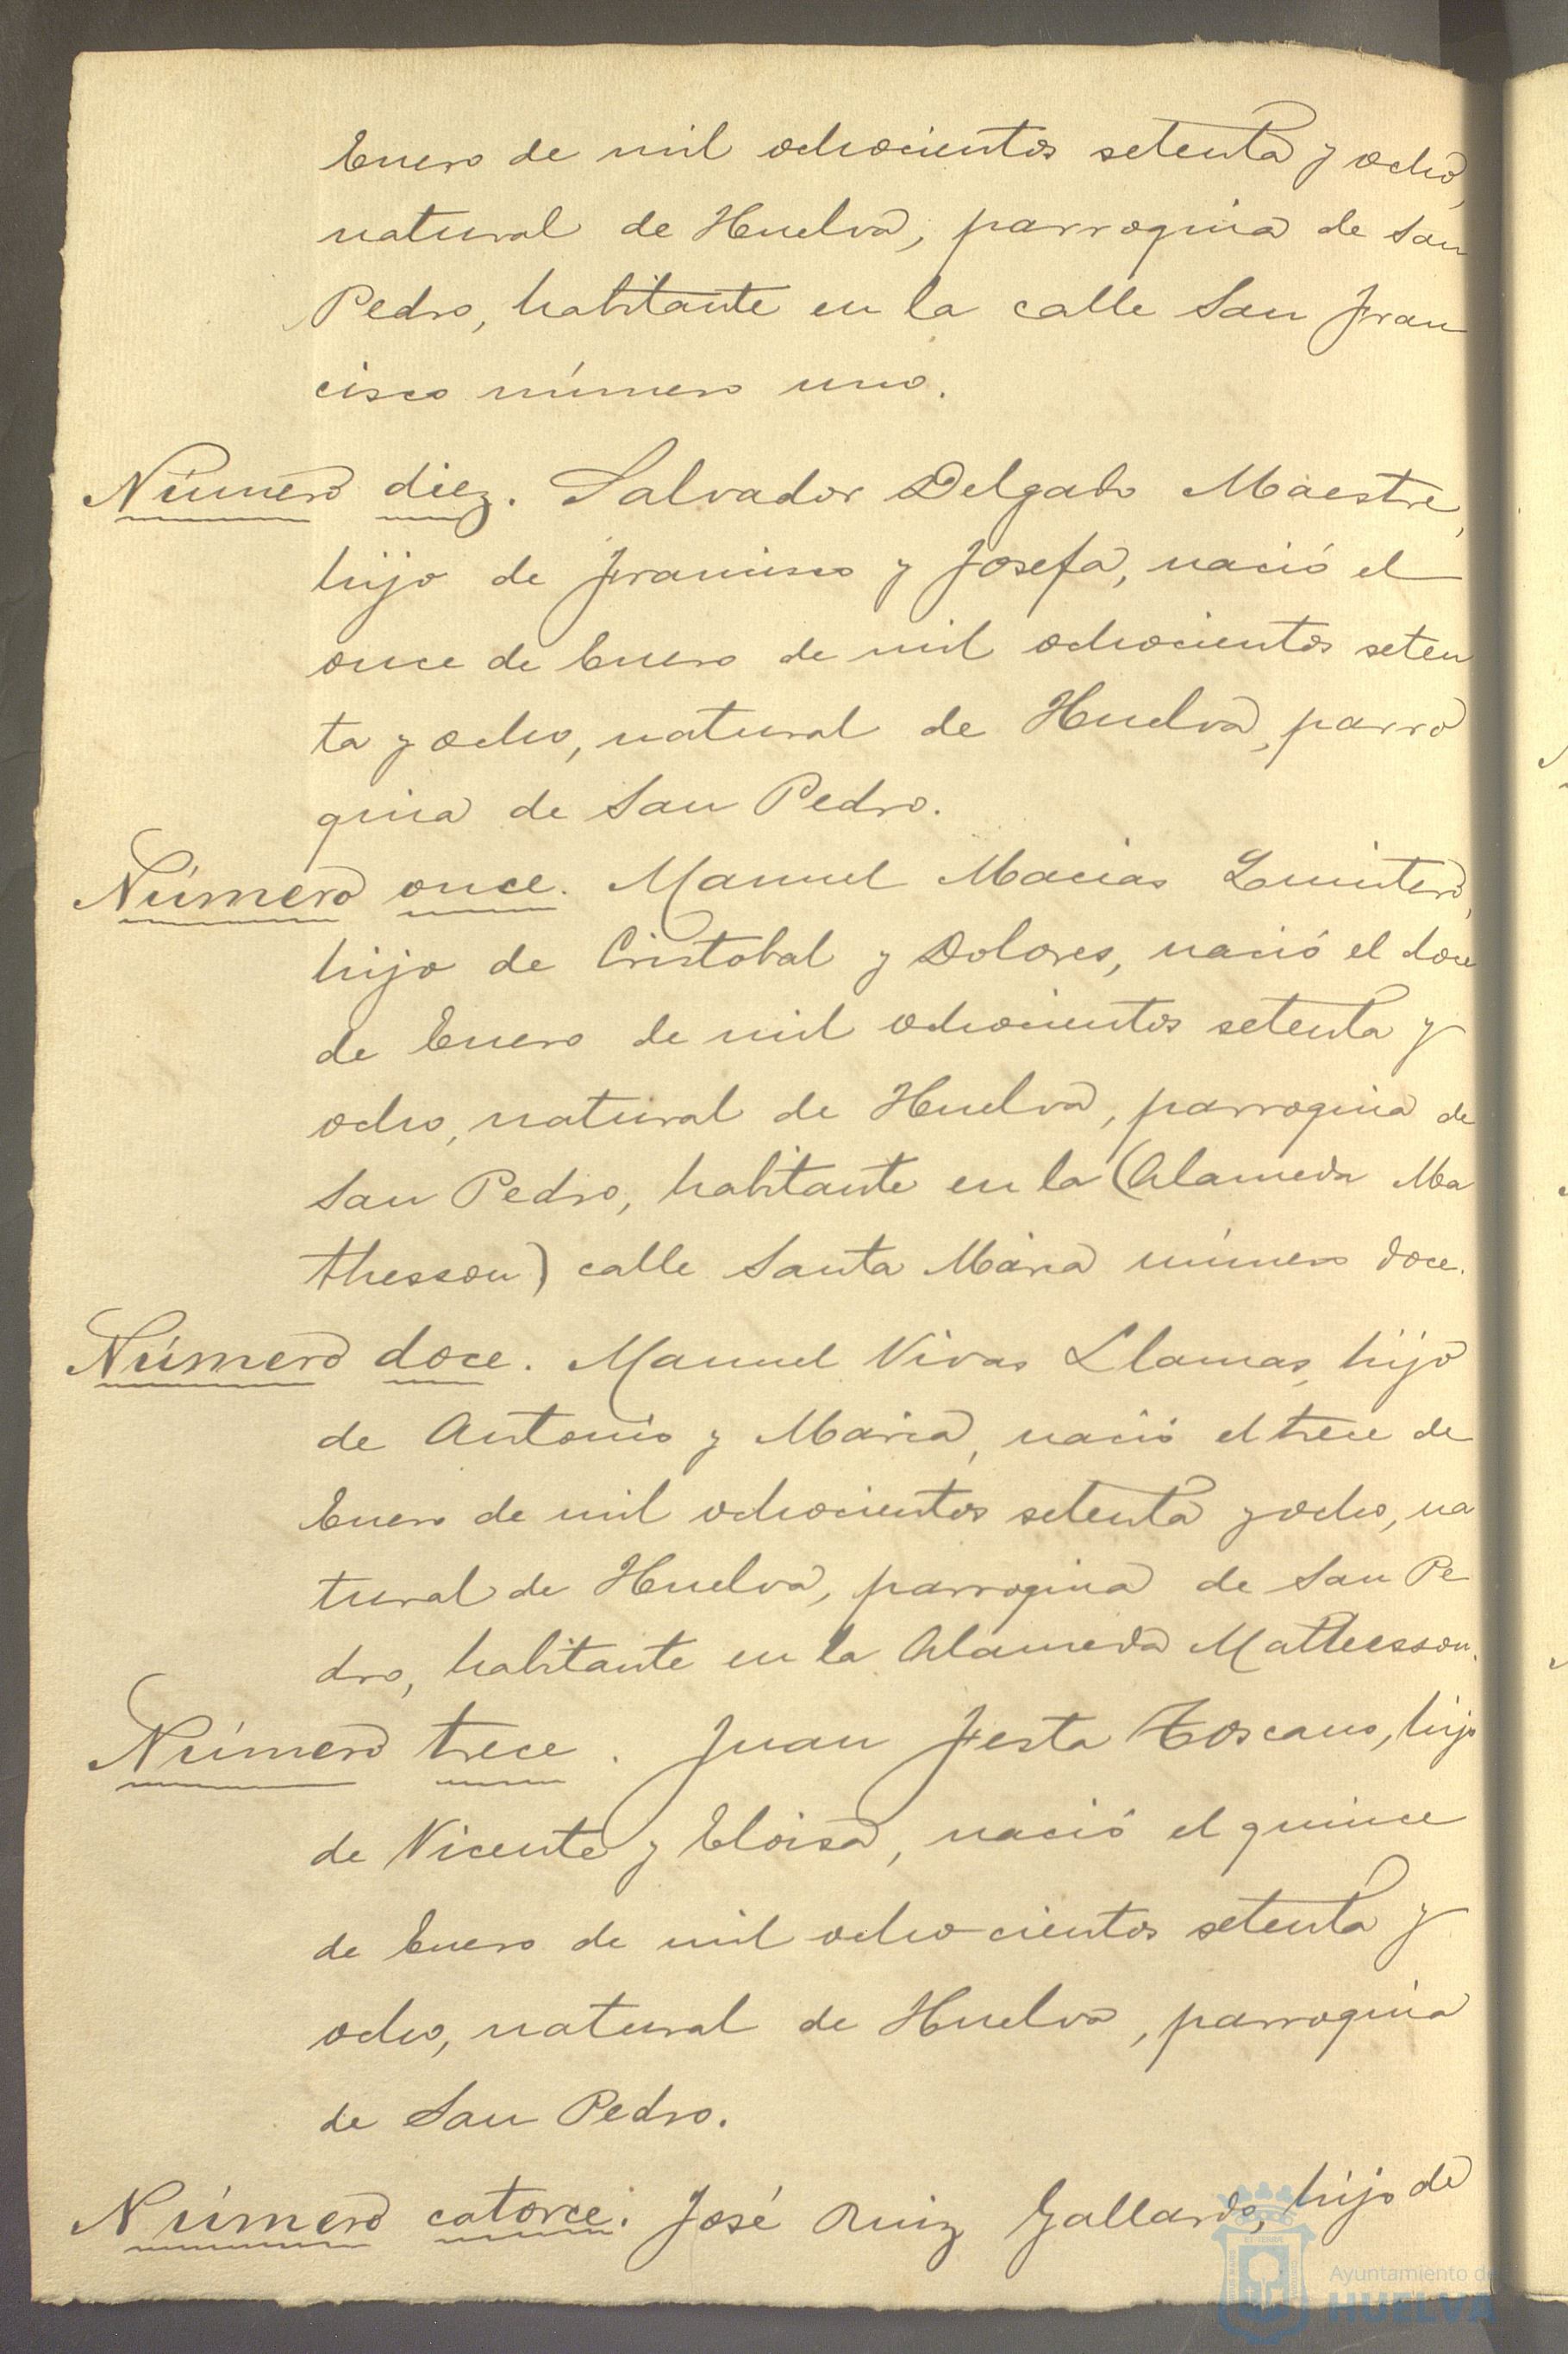 Enero de mil ochocientos setenta y ocho,
natural de Huelva, parroquia de San
Pedro, habitante en la calle San Fran
cisco número uno.
Número diez. Salvador Delgado Maestre,
hijo de Francisco y Josefa, nació el
once de Enero de mil ochocientos seten
ta y ocho, natural de Huelva, parro
quia de San Pedro.
Número once. Manuel Macias Quintero,
hijo de Cristobal y Dolores, nació el doce
de Enero de mil ochocientos setenta y
ocho, natural de Huelva, parroquia de
San Pedro, habitante en la (Alameda Ma
thesson) calle Santa Maria número doce.
Número doce. Manuel Vivas Llamas, hijo
de Antonio y Maria, nació el trece de
Enero de mil ochocientos setenta y ocho, na
tural de Huelva, parroquia de San Pe
dro, habitante en la Alameda Mathesson.
Número trece. Juan Festa Toscano, hijo
de Vicente y Eloisa, nació el quince
de Enero de mil ochocientos setenta y
ocho, natural de Huelva, parroquia
de San Pedro.
Número catorce. José Ruiz Gallardo, hijo de
Ayuntamiento de
HUELVA